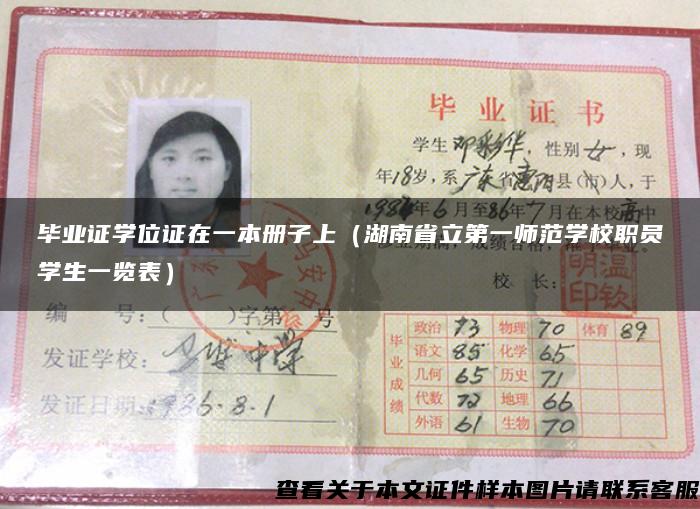 毕业证书
学生邓彩华，性别女，现
年18岁，系广东省惠阳县(市)人，于
1984年6月至86年7月在本校高
毕业证学位证在一本册子上（湖南省立第一师范学校职员
学生一览表）
校 长：
温钦
明印
编 号：（ ）字第 号
发证学校：马安中学
发证日期：1986.8.1
毕业成绩
政治 73 物理 70 体育 89
语文 85 化学 65
几何 65 历史 71
代数 72 地理 66
外语 61 生物 70
查看关于本文证件样本图片请联系客服